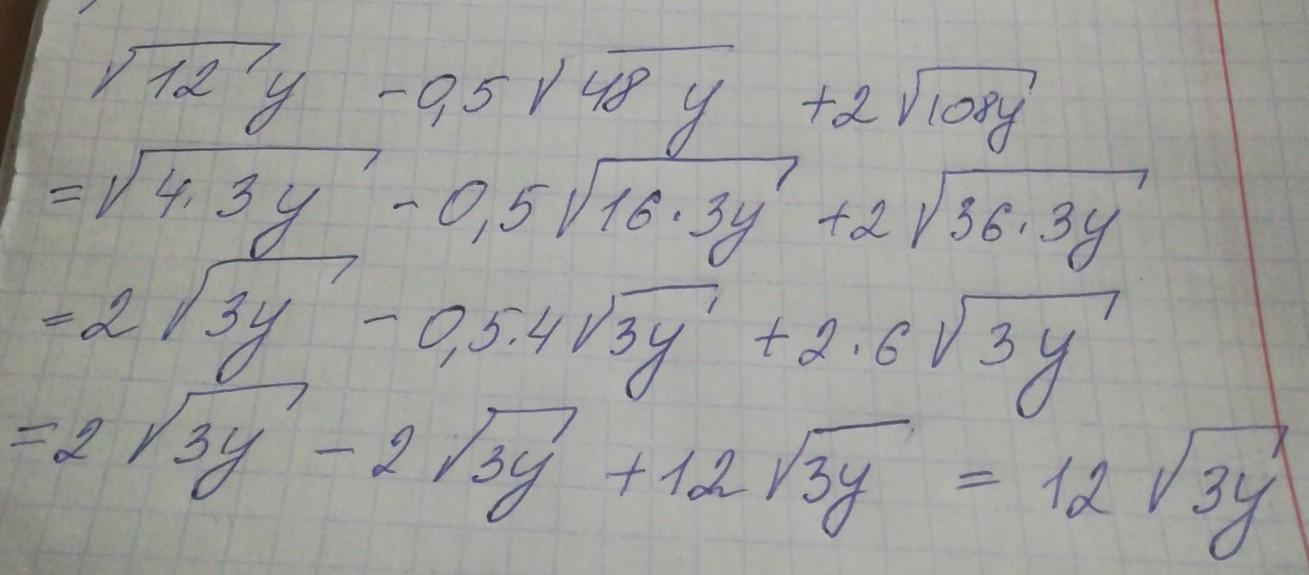 √12y - 0,5√48y + 2√108y
= √4·3y - 0,5√16·3y + 2√36·3y
= 2√3y - 0,5·4√3y + 2·6√3y
= 2√3y - 2√3y + 12√3y = 12√3y